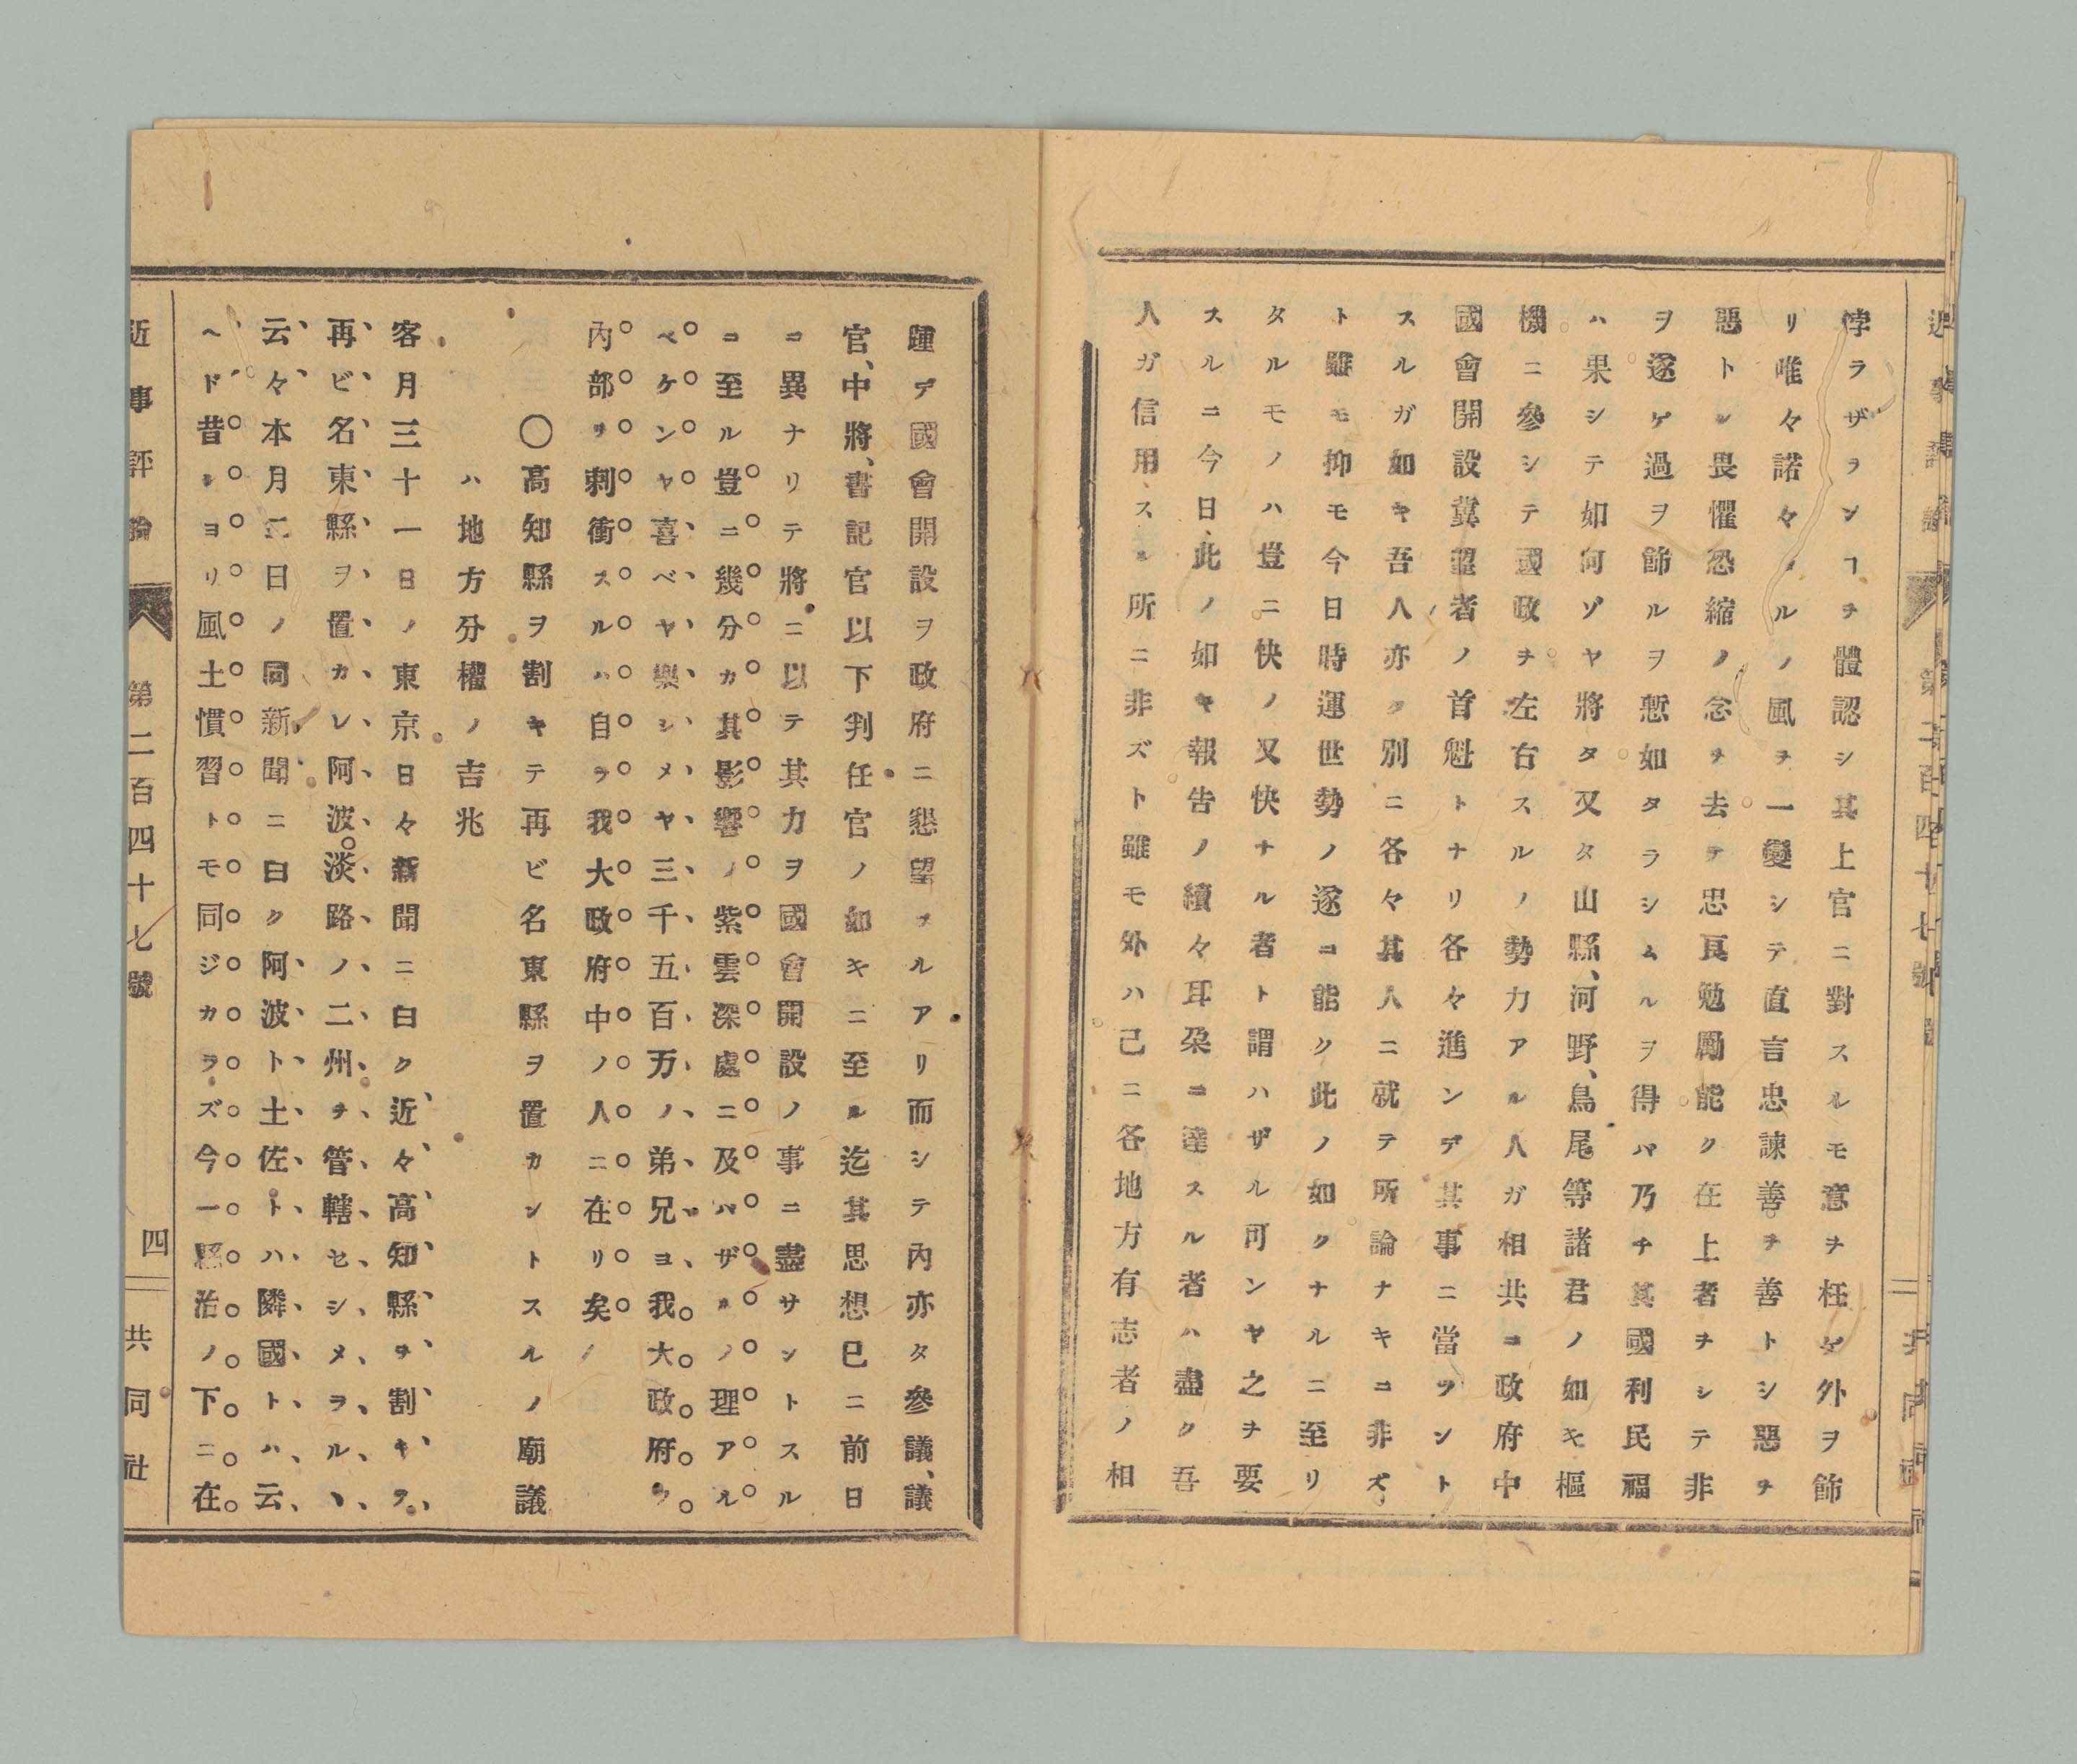 悖ラザランヿヲ體認シ其上官ニ對スルモ意ヲ枉ゲ外ヲ飾
リ唯々諾々タルノ風ヲ一變シテ直言忠諫善ヲ善トシ惡ヲ
惡トシ畏懼恐縮ノ念ヲ去テ忠良勉勵能ク在上者ヲシテ非
ヲ遂ゲ過ヲ飾ルヲ慙如タラシムルヲ得バ乃チ其國利民福
ハ果シテ如何ゾヤ將タ又タ山縣、河野、鳥尾等諸君ノ如キ樞
機ニ參シテ國政ヲ左右スルノ勢力アル人ガ相共ニ政府中
國會開設冀望者ノ首魁トナリ各々進ンデ其事ニ當ラント
スルガ如キ吾人亦タ別ニ各々其人ニ就テ所論ナキニ非ズ
ト雖モ抑モ今日時運世勢ノ遂ニ能ク此ノ如クナルニ至リ
タルモノハ豈ニ快ノ又快ナル者ト謂ハザル可ンヤ之ヲ要
スルニ今日此ノ如キ報告ノ續々耳朶ニ達スル者ハ盡ク吾
人ガ信用スル所ニ非ズト雖モ外ハ己ニ各地方有志者ノ相
踵デ國會開設ヲ政府ニ懇望スルアリ而シテ內亦タ參議、議
官、中將、書記官以下判任官ノ如キニ至ル迄其思想已ニ前日
ニ異ナリテ將ニ以テ其力ヲ國會開設ノ事ニ盡サントスル
ニ至ル豈ニ幾分カ其影響ノ紫雲深處ニ及バザルノ理アル
ベケンヤ喜ベヤ樂シメヤ三千五百万ノ弟兄ヨ我大政府ノ
內部ヲ刺衝スルハ自ラ我大政府中ノ人ニ在リ矣
〇高知縣ヲ割キテ再ビ名東縣ヲ置カントスルノ廟議
ハ地方分權ノ吉兆
客月三十一日ノ東京日々新聞ニ曰ク近々高知縣ヲ割キテ
再ビ名東縣ヲ置カレ阿波淡路ノ二州ヲ管轄セシメラルヽ
云々本月二日ノ同新聞ニ曰ク阿波ト土佐トハ隣國トハ云
ヘド昔シヨリ風土慣習トモ同ジカラズ今一縣治ノ下ニ在
近事評論
第二百四十七號
四
共同社